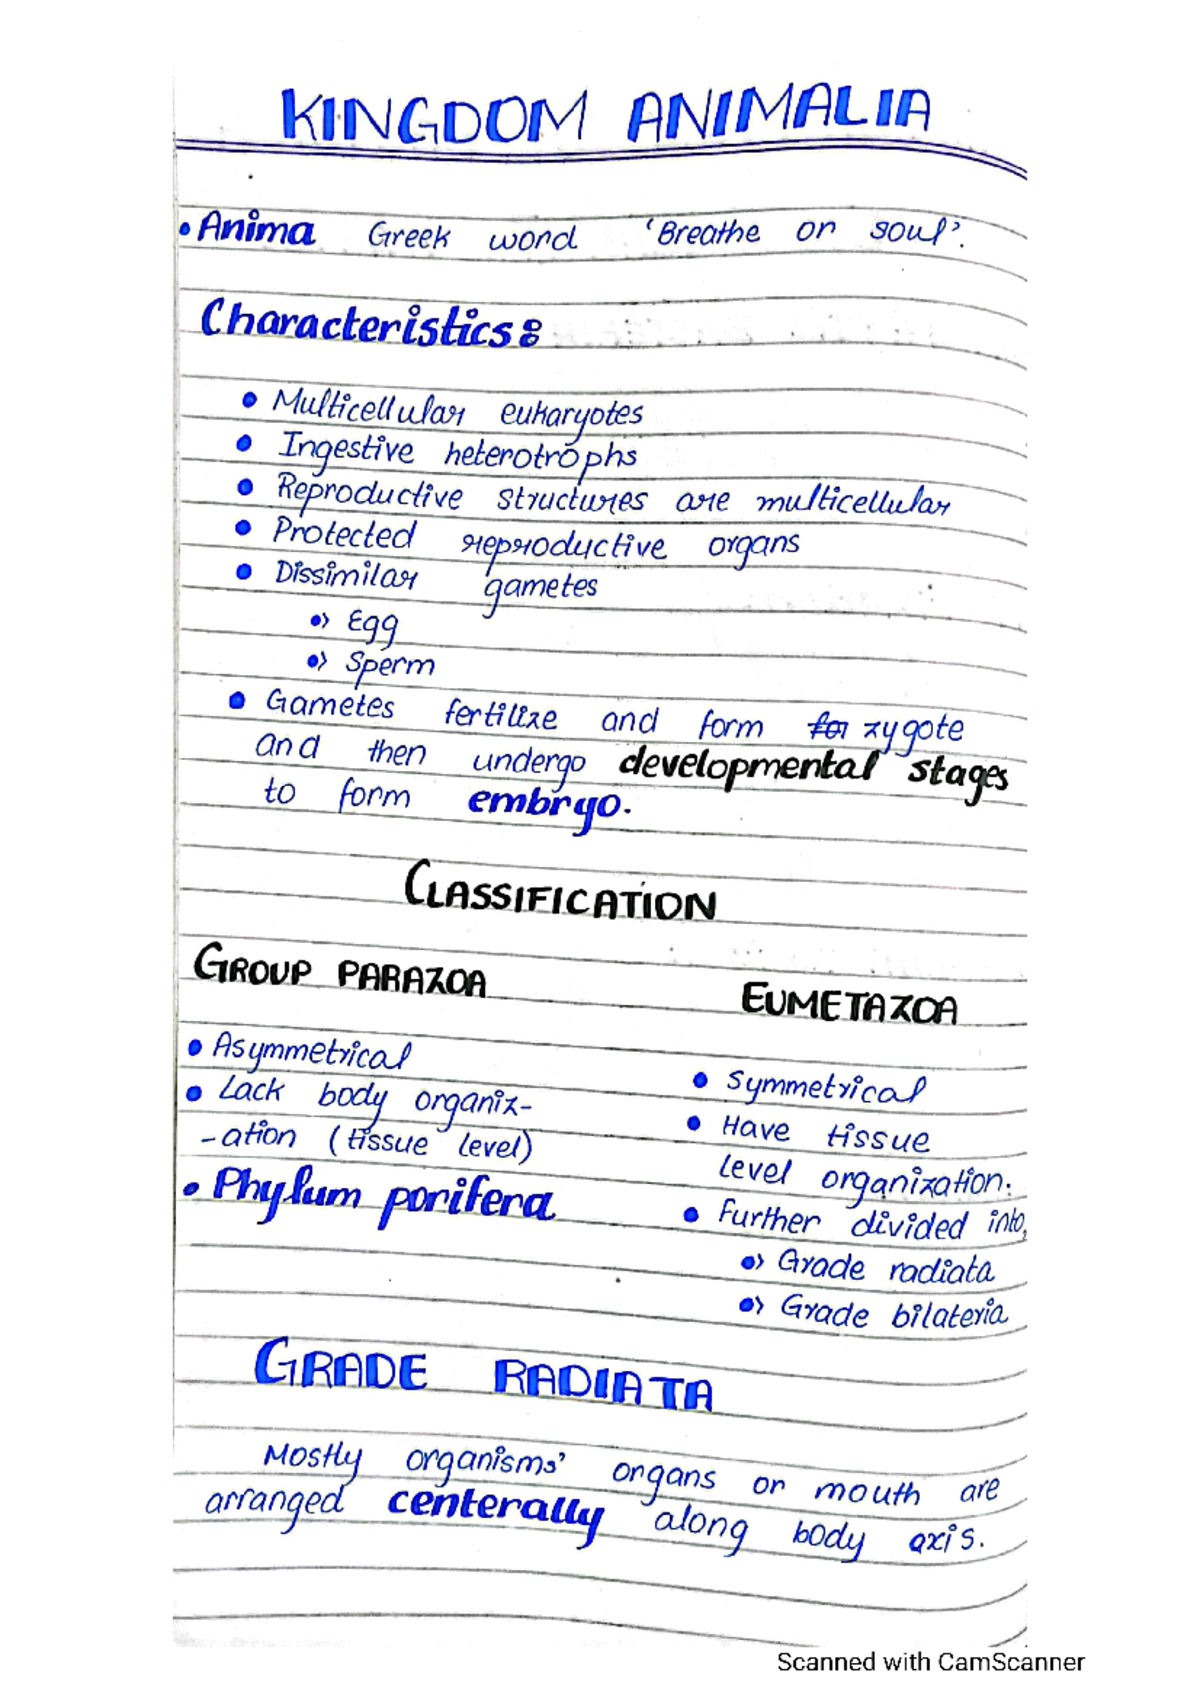 KINGDOM ANIMALIA
• Anima Greek word 'Breathe or soul'.
Characteristics:
• Multicellular eukaryotes
• Ingestive heterotrophs
• Reproductive structures are multicellular
• Protected reproductive organs
• Dissimilar gametes
•> Egg
•> Sperm
• Gametes fertilize and form for zygote
and then undergo developmental stages
to form embryo.
CLASSIFICATION
GROUP PARAZOA
• Asymmetrical
• Lack body organiz-
-ation (tissue level)
• Phylum porifera
EUMETAZOA
• Symmetrical
• Have tissue
level organization.
• Further divided into,
•> Grade radiata
•> Grade bilateria
GRADE RADIATA
Mostly organisms' organs or mouth are
arranged centerally along body axis.
Scanned with CamScanner